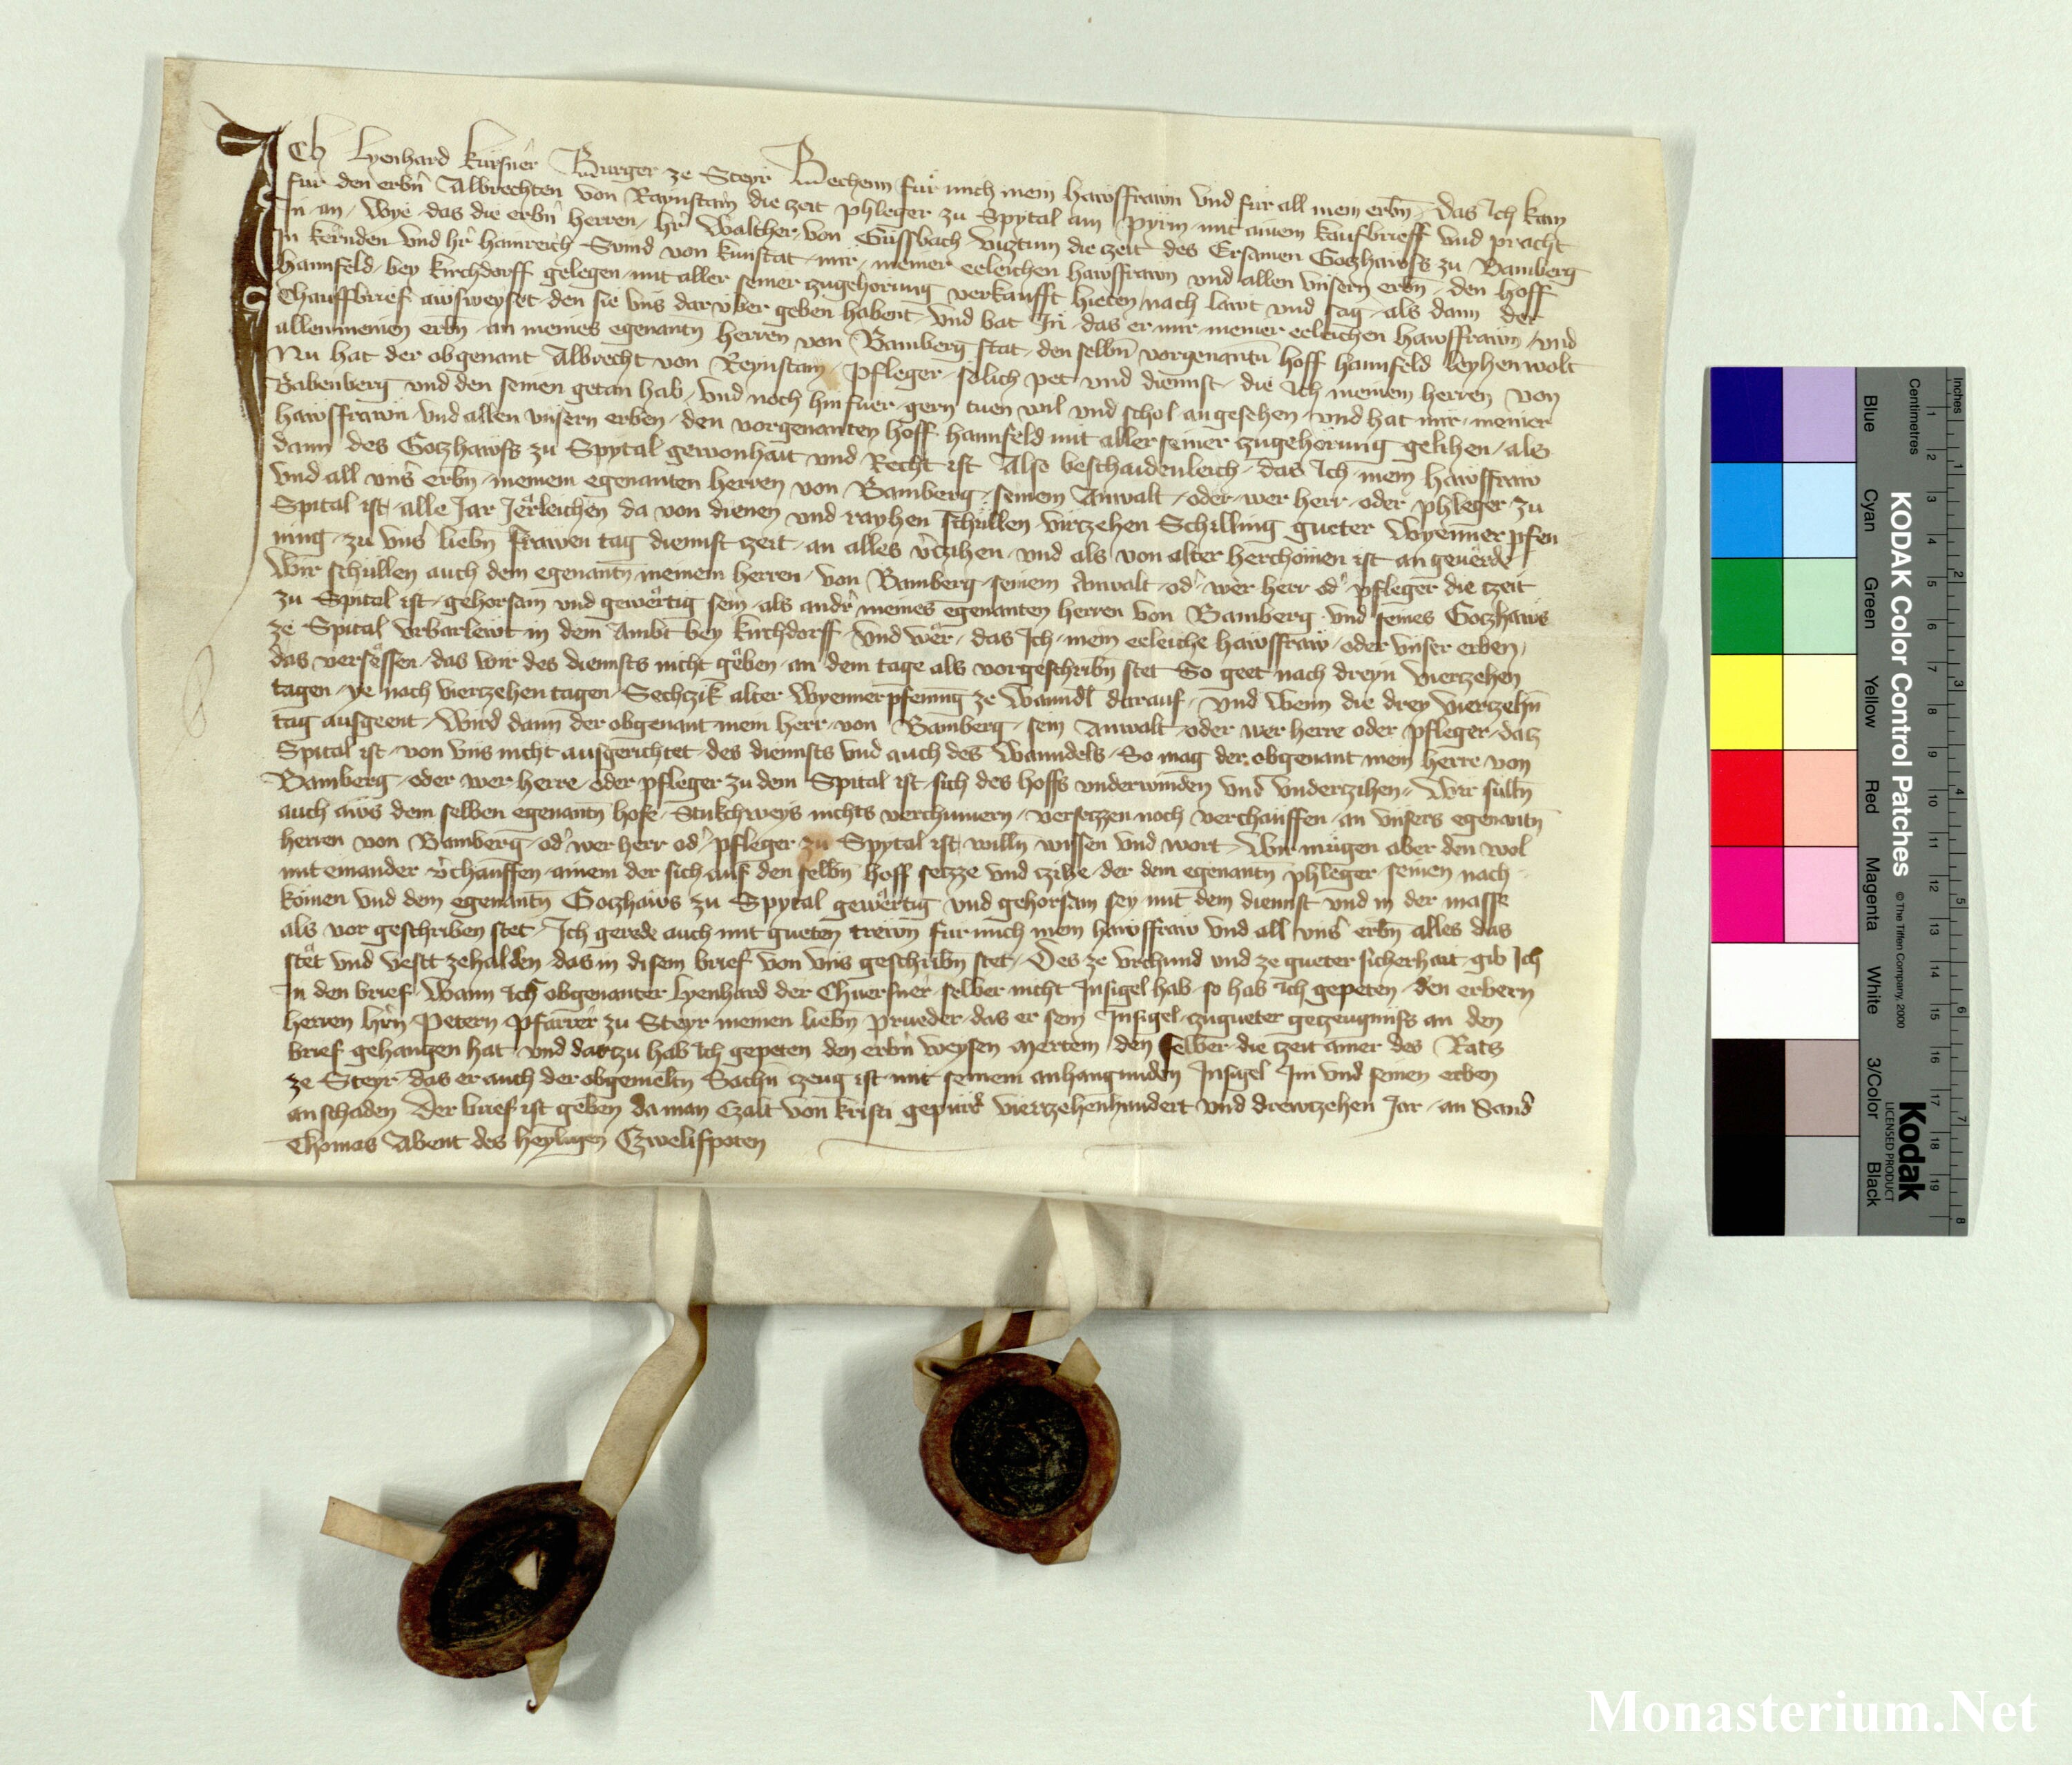 ICh Lyenhard kürsner Burger ze Steyr Bechenn für mich mein hawsfrawn vnd für all mein erbn das Ich kam
für den erbn Albrechten von Raynstain die zeit phleger zu Spytal am Pyrn mit ainem kaufbrieff vnd pracht
In an wye das die erbn herren hr walther von Gussbach viztum die zeit des Ersamen Gotzhawss zu Bamberg
In kernden vnd hr hainreich von kunstat mir meiner eeleichen hawsfrawn vnd allen vnsern erbn den hoff
hannfeld bey kirchdorff gelegen mit aller seiner zugehorung verkaufft hieten nach lawt vnd sag als dann der
Chauffbrief awsweyset den sie vns darvber geben habent vnd bat In das er mir meiner eeleichen hawsfrawn vnd
allen meinen erbn an meines egenantn herren von Bamberg stat den selbn vorgenantn hoff hannfeld leyhen wolt
Nu hat der obgenant Albrecht von Reynstain pfleger solich pet vnd dienst die Ich meinem herren von
Babenberg vnd den seinen getan hab vnd noch hinfuer gern tuen wil vnd schol angesehen vnd hat mir meiner
hawsfrawn vnd allen vnsern erben den vorgenanten hoff hannfeld mit aller seiner zugehörung gelihen als
dann des Gotzhawss zu Spytal gewonhait vnd Recht ist Also beschaidenleich das Ich mein hawsfraw
vnd all vnser erbn meinem egenanten herren von Bamberg seinem Anwalt oder wer herr oder phleger zu
Spital ist alle Jar Jerleichen da von dienen vnd rayhen schullen virtzehen Schilling gueter wyenner pfen
ning zu vnser liebn frawen tag dienst zeit an alles vertzihen vnd als von alter herchomen ist an geuerde
Wir schullen auch dem egenantn meinem herren von Bamberg seinem Anwalt oder wer herr oder pfleger die tzeit
zu Spital ist gehorsam vnd gewertig sein als ander meines egenanten herren von Bamberg vnd seines Gotzhaws
ze Spital vrbarlewt in dem Ambt bey kirchdorff vnd wer das Ich mein eeleiche hawsfraw oder vnser erben
das versessen das wir des diensts nicht geben an dem tage als vorgeschribn stet So geet nach dreyn viertzehen
tagen ye nach viertzehen tagen Sechczik alter wyenner pfening ze wanndl darauf vnd wenn die drey viertzehn
tag ausgeent wird dann der obgenant mein herr von Bamberg sein Anwalt oder wer herre oder pfleger datz
Spital ist von vns nicht ausgerichtet des diensts vnd auch des wanndels So mag der obgenant mein herre von
Bamberg oder wer herre oder pfleger zu dem Spital ist sich des hoffs vnderwinden vnd vndertzihen wir sulln
auch aws dem selben egenantn hofe Stukchweys nichts verchumern versetzzen noch verchauffen an vnsers egenantn
herren von Bamberg oder wer herr oder pfleger zu Spytal ist willn wissen vnd wort Wir mügen aber den wol
mit einander verchauffen ainem der sich auf den selbn hoff setzze vnd tzihe der dem egenantn phleger seinen nach
komen vnd dem egenantn Gotzhaws zu Spytal gewertig vnd gehorsam sey mit dem dienst vnd in der masse
als vor geschriben stet Ich gerede auch mit gueten trewn für mich mein hawsfraw vnd all vnser erbn alles das
stet vnd vestt zehalden das in disem brief von vns geschribn stet Des ze vrchund vnd ze gueter sicherhait gib Ich
In den brief Wann Ich obgenanter Lyenhard der Chuersner selber nicht Insigel hab so hab Ich gepeten den erbern
herren hern Petern Pfarrer zu Steyr meinen liebn prueder das er sein Insigel zu gueter getzeugnüss an den
brief gehangen hat vnd dartzu hab Ich gepeten den erbn weysen mertein den selber die tzeit ainer des Rats
ze Steyr das er auch der obgemeltn Sachn tzeug ist mit seinem anhangunden Insigel Im vnd seinen erben
an schaden Der brief ist geben da man Czalt von kristi gepurd viertzehenhundert vnd drewtzehen Jar an Sand
Thomas Abent des heyligen Czwelifpoten
Inches
Centimetres
KODAK Color Control Patches
© The Tiffen Company, 2000
Kodak
LICENSED PRODUCT
Blue
Cyan
Green
Yellow
Red
Magenta
White
3/Color
Black
Monasterium.Net